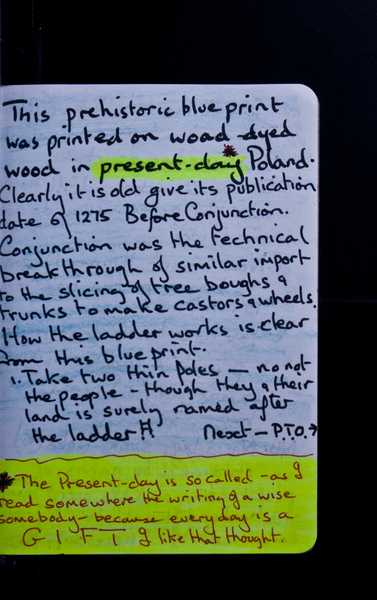 This prehistoric blue print
was printed on woad-dyed
wood in present-day* Poland.
Clearly it is old give its publication
date of 1275 Before Conjunction.
Conjunction was the technical
breakthrough of similar import
to the slicing of tree boughs &
trunks to make castors & wheels.
How the ladder works is clear
from this blue print.
1. Take two thin Poles — no not
the people - though they & their
land is surely named after
the ladder!! Next — P.T.O. →
* The Present-day is so called - as I
read somewhere the writing of a wise
somebody - because everyday is a
G I F T I like that thought.